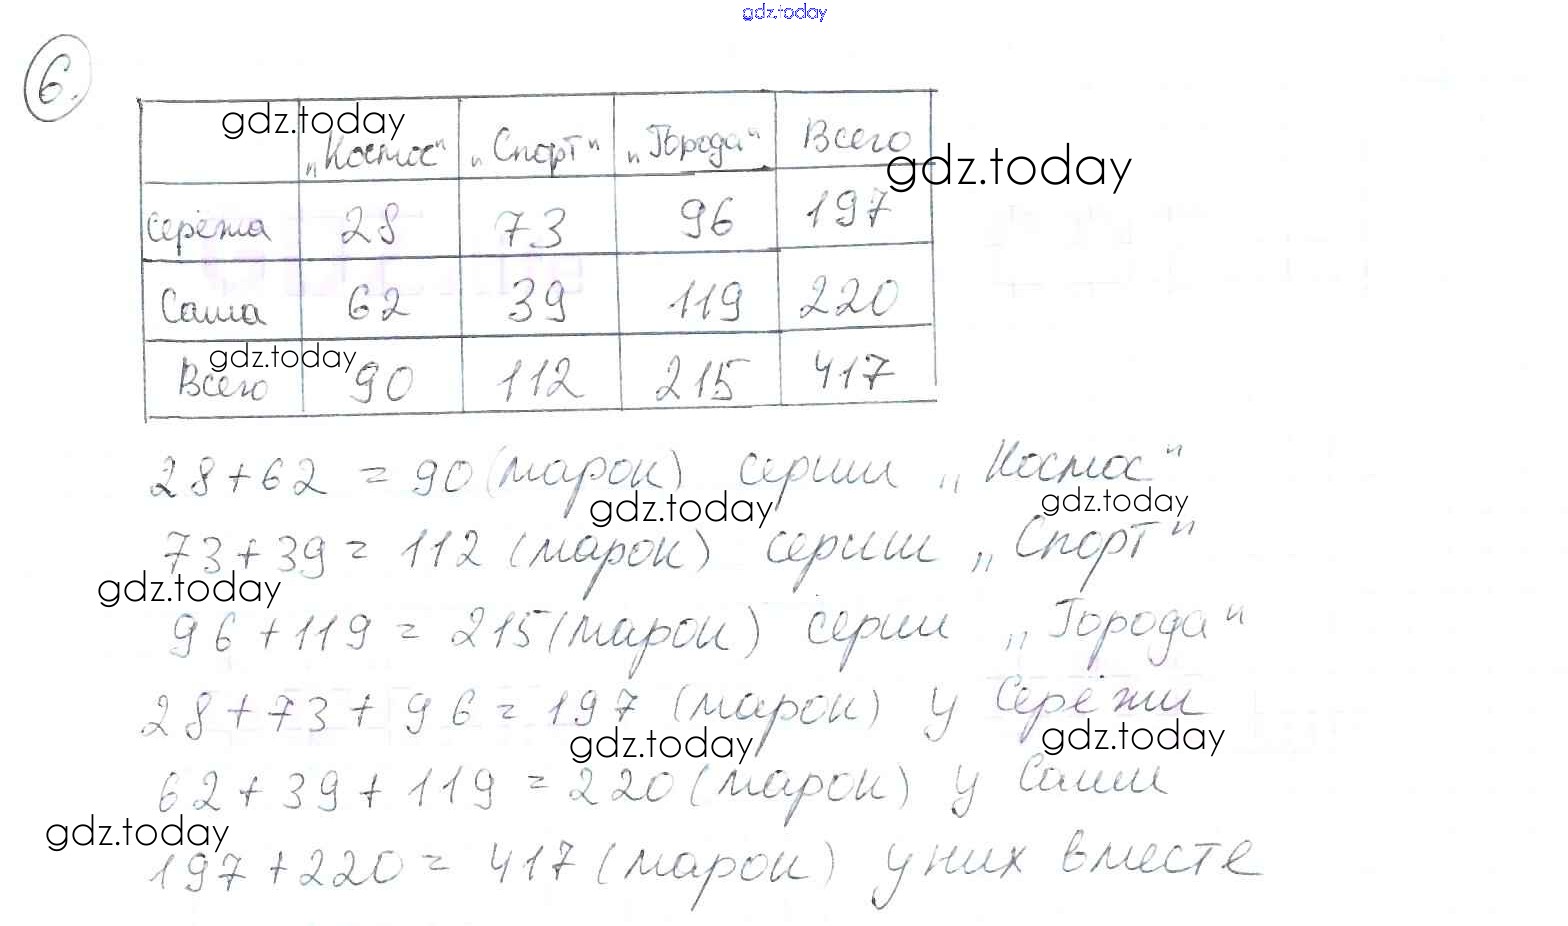 gdz.today
6.
gdz.today
„Космос“ „Спорт“ „Города“ Всего
gdz.today
Серёжа 28 73 96 197
Саша 62 39 119 220
gdz.today
Всего 90 112 215 417
28+62 = 90 (марок) серии „Космос“
gdz.today gdz.today
73+39 = 112 (марок) серии „Спорт“
gdz.today
96+119 = 215 (марок) серии „Города“
28+73+96 = 197 (марок) у Серёжи
gdz.today gdz.today
62+39+119 = 220 (марок) у Саши
gdz.today
197+220 = 417 (марок) у них вместе